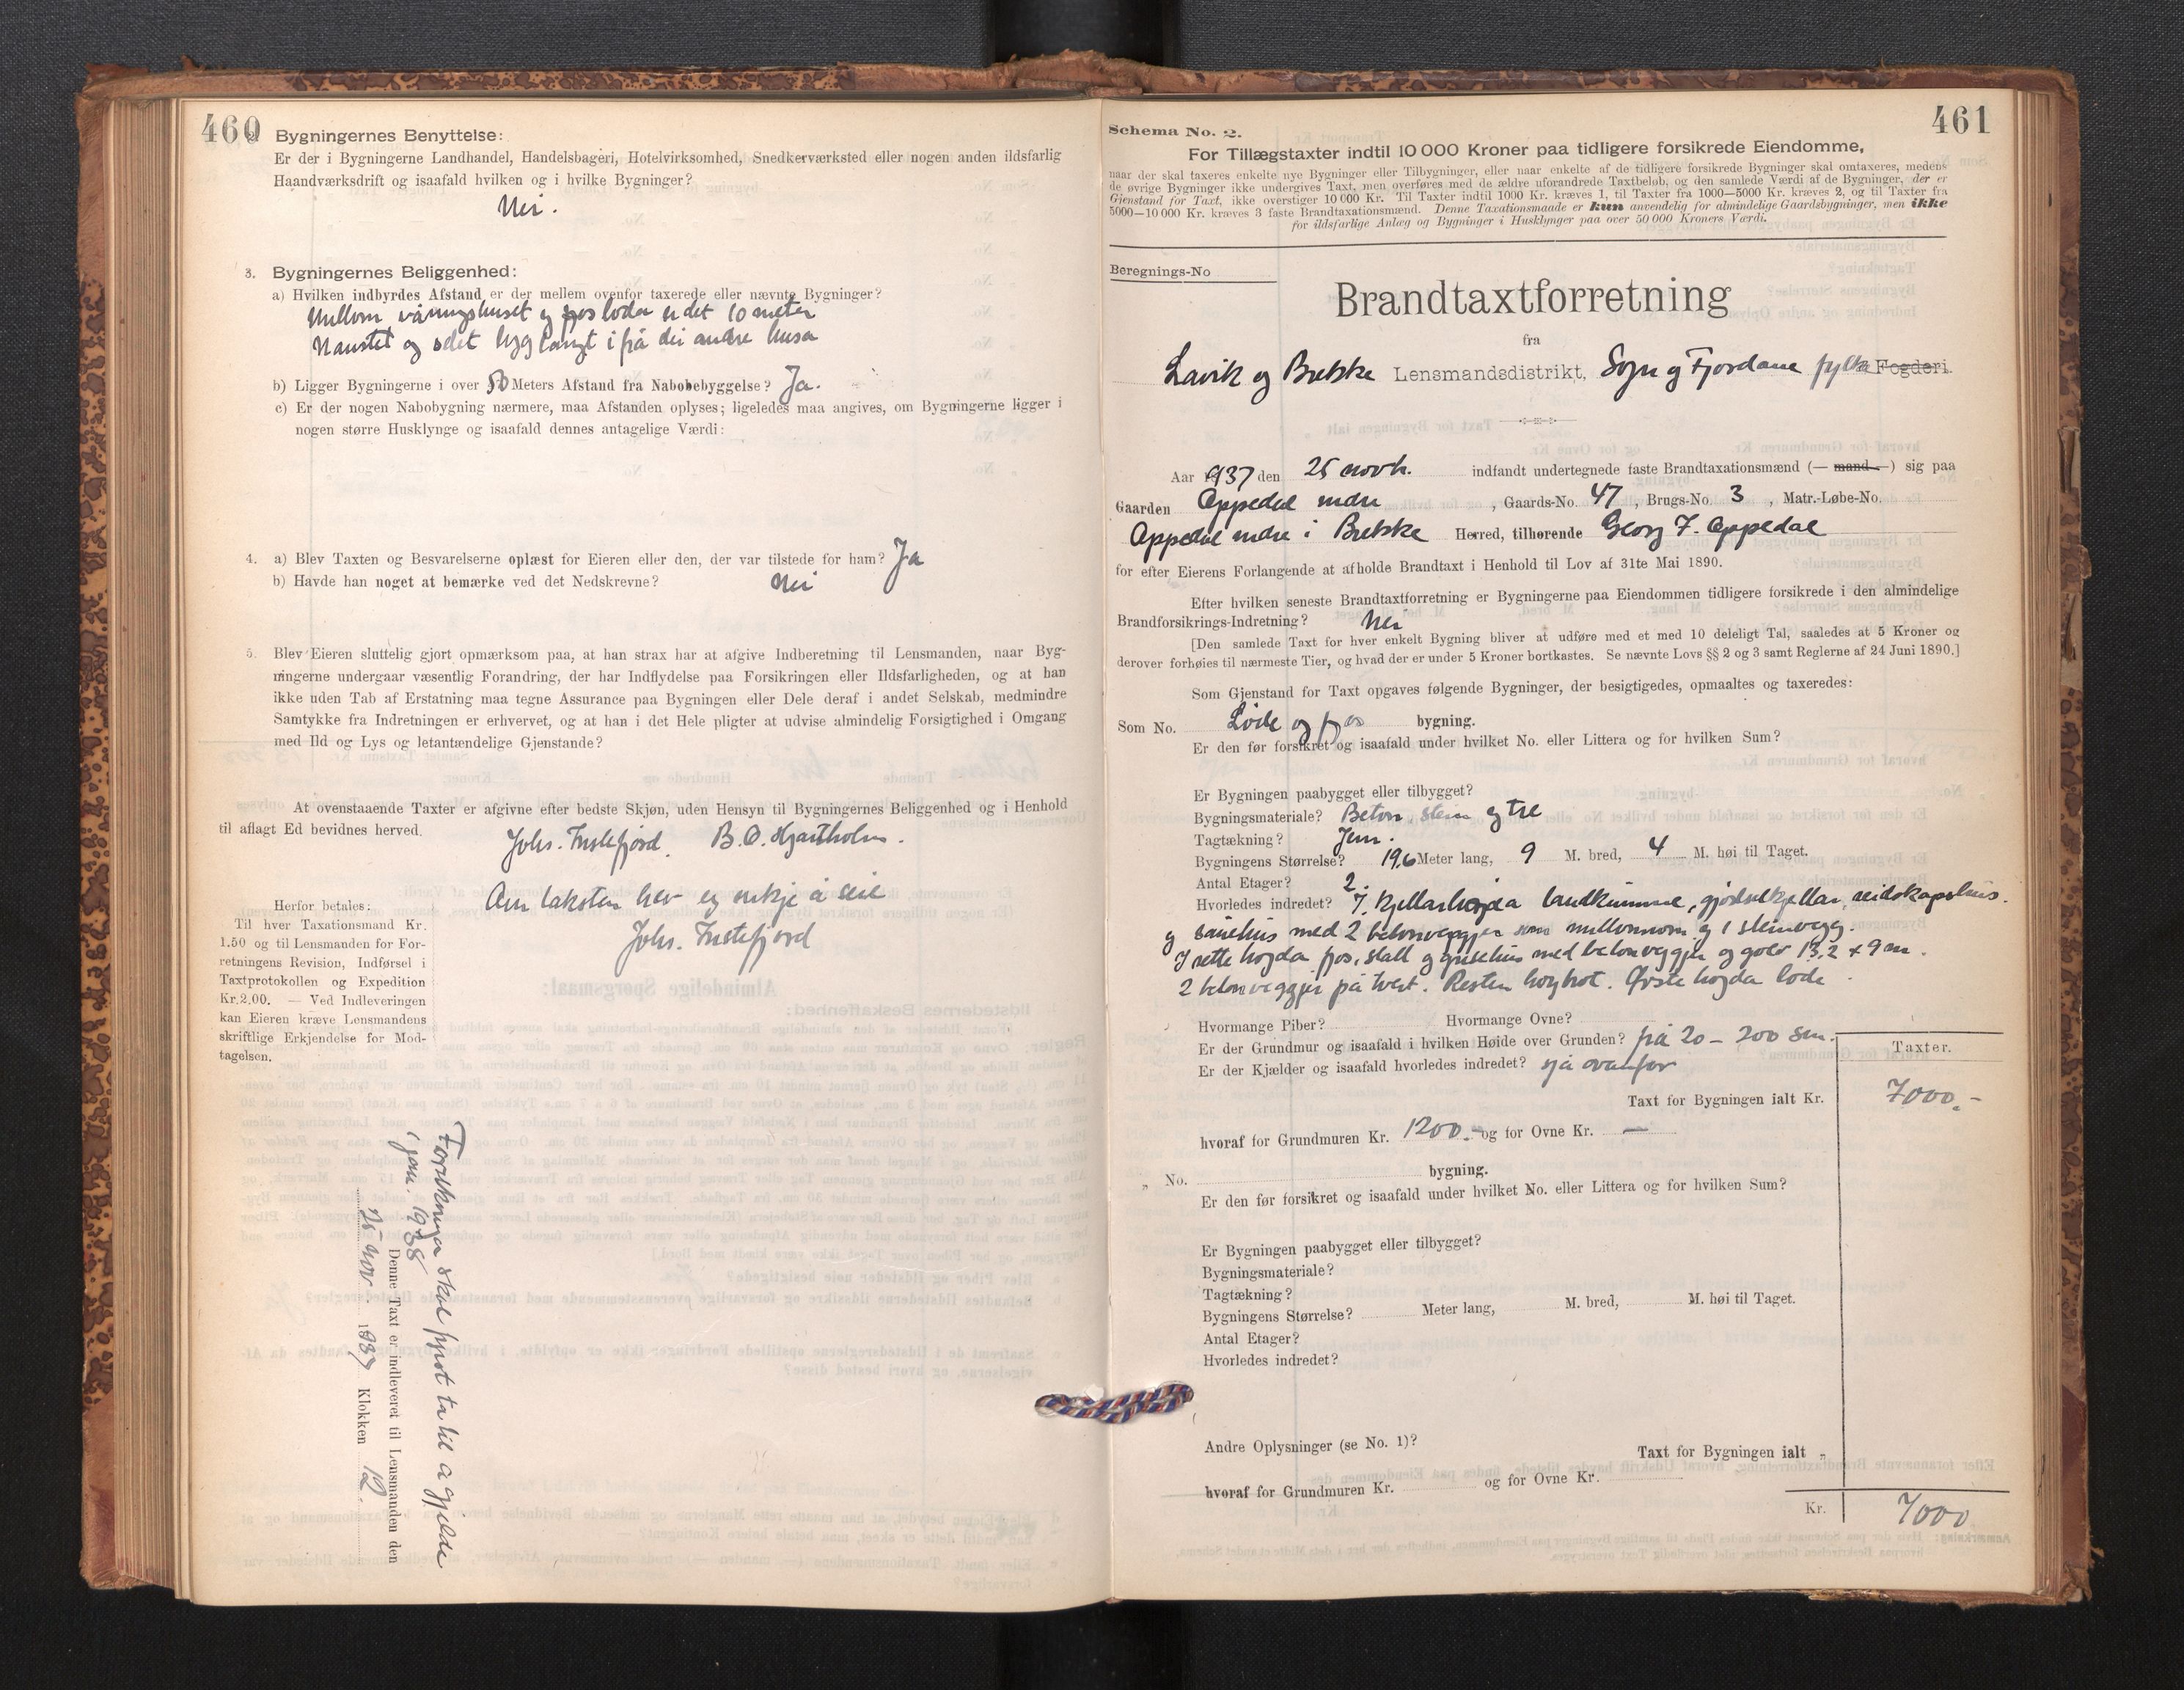 460
2. Bygningernes Benyttelse:
Er der i Bygningerne Landhandel, Handelsbageri, Hotelvirksomhed, Snedkerværksted eller nogen anden ildsfarlig
Haandværksdrift og isaafald hvilken og i hvilke Bygninger?
Nei.
3. Bygningernes Beliggenhed:
a) Hvilken indbyrdes Afstand er der mellem ovenfor taxerede eller nævnte Bygninger?
Millom våningshuset og fjosloda er det 10 meter
Naustet og eldet ligg langt ifrå dei andre husa
b) Ligger Bygningerne i over 50 Meters Afstand fra Nabobebyggelse? Ja.
c) Er der nogen Nabobygning nærmere, maa Afstanden oplyses; ligeledes maa angives, om Bygningerne ligger i
nogen større Husklynge og isaafald dennes antagelige Værdi:
4. a) Blev Taxten og Besvarelserne oplæst for Eieren eller den, der var tilstede for ham? Ja
b) Havde han noget at bemærke ved det Nedskrevne? Nei
5. Blev Eieren sluttelig gjort opmærksom paa, at han strax har at afgive Indberetning til Lensmanden, naar Byg-
ningerne undergaar væsentlig Forandring, der har Indflydelse paa Forsikringen eller Ildsfarligheden, og at han
ikke uden Tab af Erstatning maa tegne Assurance paa Bygningen eller Dele deraf i andet Selskab, medmindre
Samtykke fra Indretningen er erhvervet, og at han i det Hele pligter at udvise almindelig Forsigtighed i Omgang
med Ild og Lys og letantændelige Gjenstande?
At ovenstaaende Taxter er afgivne efter bedste Skjøn, uden Hensyn til Bygningernes Beliggenhed og i Henhold
til aflagt Ed bevidnes herved.
Johs. Instefjord. B. O. Hjartholm.
Om taksten hev eg inkje å seie
Johs. Instefjord
Herfor betales:
Til hver Taxationsmand Kr.
1.50 og til Lensmanden for For-
retningens Revision, Indførsel i
Taxtprotokollen og Expedition
Kr. 2.00. — Ved Indleveringen
kan Eieren kræve Lensmandens
skriftlige Erkjendelse for Mod-
tagelsen.
Forsikringa skal fyrst ta til å gjelde
i jan. 1938
Denne Taxt er indleveret til Lensmanden den
25 nov. 1937 Klokken 12.
461
Schema No. 2.
For Tillægstaxter indtil 10 000 Kroner paa tidligere forsikrede Eiendomme,
naar der skal taxeres enkelte nye Bygninger eller Tilbygninger, eller naar enkelte af de tidligere forsikrede Bygninger skal omtaxeres, medens
de øvrige Bygninger ikke undergives Taxt, men overføres med de ældre uforandrede Taxtbeløb, og den samlede Værdi af de Bygninger, der er
Gjenstand for Taxt, ikke overstiger 10 000 Kr. Til Taxter indtil 1000 Kr. kræves 1, til Taxter fra 1000—5000 Kr. kræves 2, og til Taxter fra
5000—10 000 Kr. kræves 3 faste Brandtaxationsmænd. Denne Taxationsmaade er kun anvendelig for almindelige Gaardsbygninger, men ikke
for ildsfarlige Anlæg og Bygninger i Husklynger paa over 50 000 Kroners Værdi.
Beregnings-No
Brandtaxtforretning
fra
Lavik og Brekke Lensmandsdistrikt, Sogn og Fjordane fylke Fogderi.
Aar 1937 den 25 novbr. indfandt undertegnede faste Brandtaxationsmænd (— mand —) sig paa
Gaarden Oppedal indre, Gaards-No. 47, Brugs-No. 3, Matr.-Løbe-No.
Oppedal indre i Brekke Herred, tilhørende Georg F. Oppedal
for efter Eierens Forlangende at afholde Brandtaxt i Henhold til Lov af 31te Mai 1890.
Efter hvilken seneste Brandtaxtforretning er Bygningerne paa Eiendommen tidligere forsikrede i den almindelige
Brandforsikrings-Indretning? Nei
[Den samlede Taxt for hver enkelt Bygning bliver at udføre med et med 10 deleligt Tal, saaledes at 5 Kroner og
derover forhøies til nærmeste Tier, og hvad der er under 5 Kroner bortkastes. Se nævnte Lovs §§ 2 og 3 samt Reglerne af 24 Juni 1890.]
Som Gjenstand for Taxt opgaves følgende Bygninger, der besigtigedes, opmaaltes og taxeredes:
Som No. Løde og fjos bygning.
Er den før forsikret og isaafald under hvilket No. eller Littera og for hvilken Sum?
Er Bygningen paabygget eller tilbygget?
Bygningsmateriale? Beton, stein og tre
Tagtækning? Jern.
Bygningens Størrelse? 19,6 Meter lang, 9 M. bred, 4 M. høi til Taget.
Antal Etager? 2.
Hvorledes indredet? I. kjellarhøgda landkumme, gjødselkjellar, reidskapshus.
og sauehus med 2 betonveggjer som millomrom og 1 steinvegg.
I rette høgda fjos, stall og grisehus med betonveggjer og golv 13,2 x 9 m.
2 betonveggjer på tvert. Resten høybrot. Øvste høgda løde.
Hvormange Piber? Hvormange Ovne?
Er der Grundmur og isaafald i hvilken Høide over Grunden? frå 20 – 200 sm.
Er der Kjælder og isaafald hvorledes indredet? sjå ovanfor
Taxter.
Taxt for Bygningen ialt Kr. 7000.-
hvoraf for Grundmuren Kr. 1200.- og for Ovne Kr. —
„ No. bygning.
Er den før forsikret og isaafald under hvilket No. eller Littera og for hvilken Sum?
Er Bygningen paabygget eller tilbygget?
Bygningsmateriale?
Tagtækning?
Bygningens Størrelse? Meter lang, M. bred, M. høi til Taget.
Antal Etager?
Hvorledes indredet?
Andre Oplysninger (se No. 1)?
Taxt for Bygningen ialt „
hvoraf for Grundmuren Kr. og for Ovne Kr.
Kr. 7000